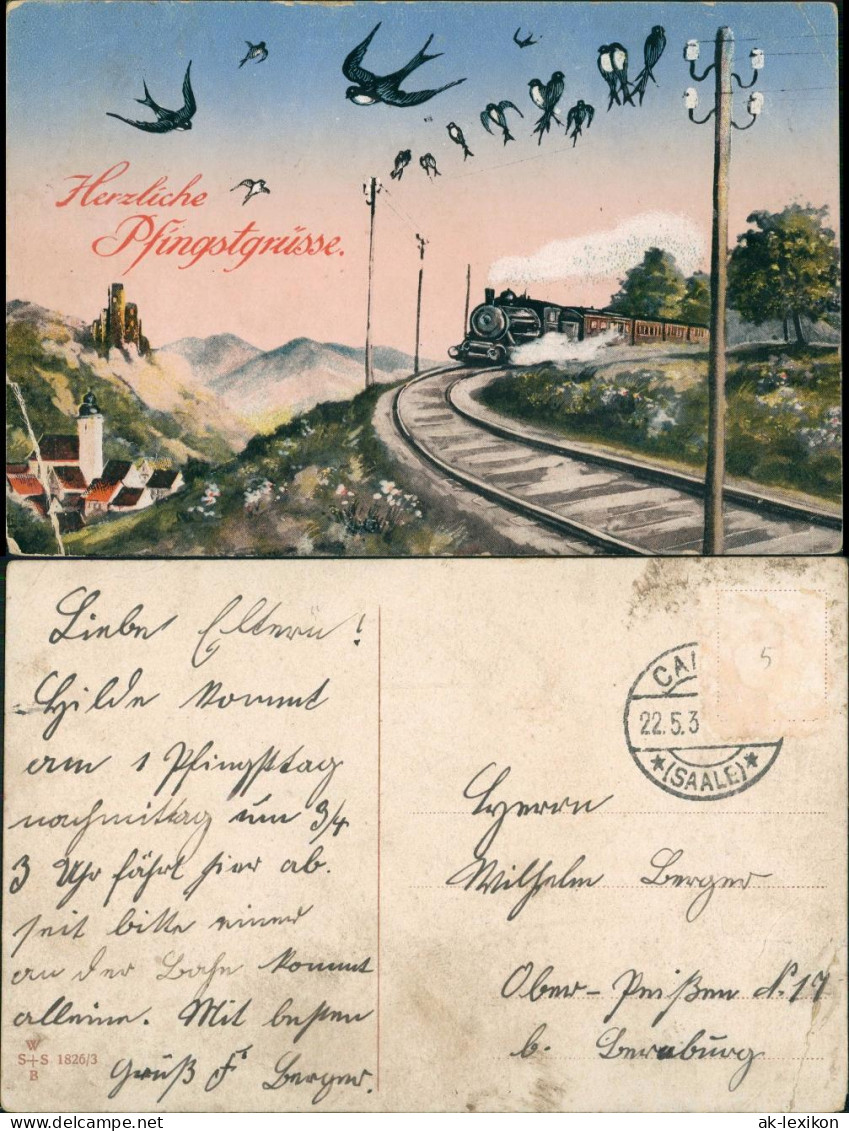 Herzliche
Pfingstgrüsse.
Liebe Eltern!
Hilde kommt
am 1 Pfingsttag
nachmittag um 3/4
3 Uhr fährt hier ab.
seit bitte einer
an der Bahn kommt
alleine. Mit besten
Gruß F. Berger.
W
S+S 1826/3
B
5
CAL
22.5.3
*(SAALE)*
Herrn
Wilhelm Berger
Ober-Peißen No 17
b. Bernburg
ak-lexikon
ak-lexikon.com